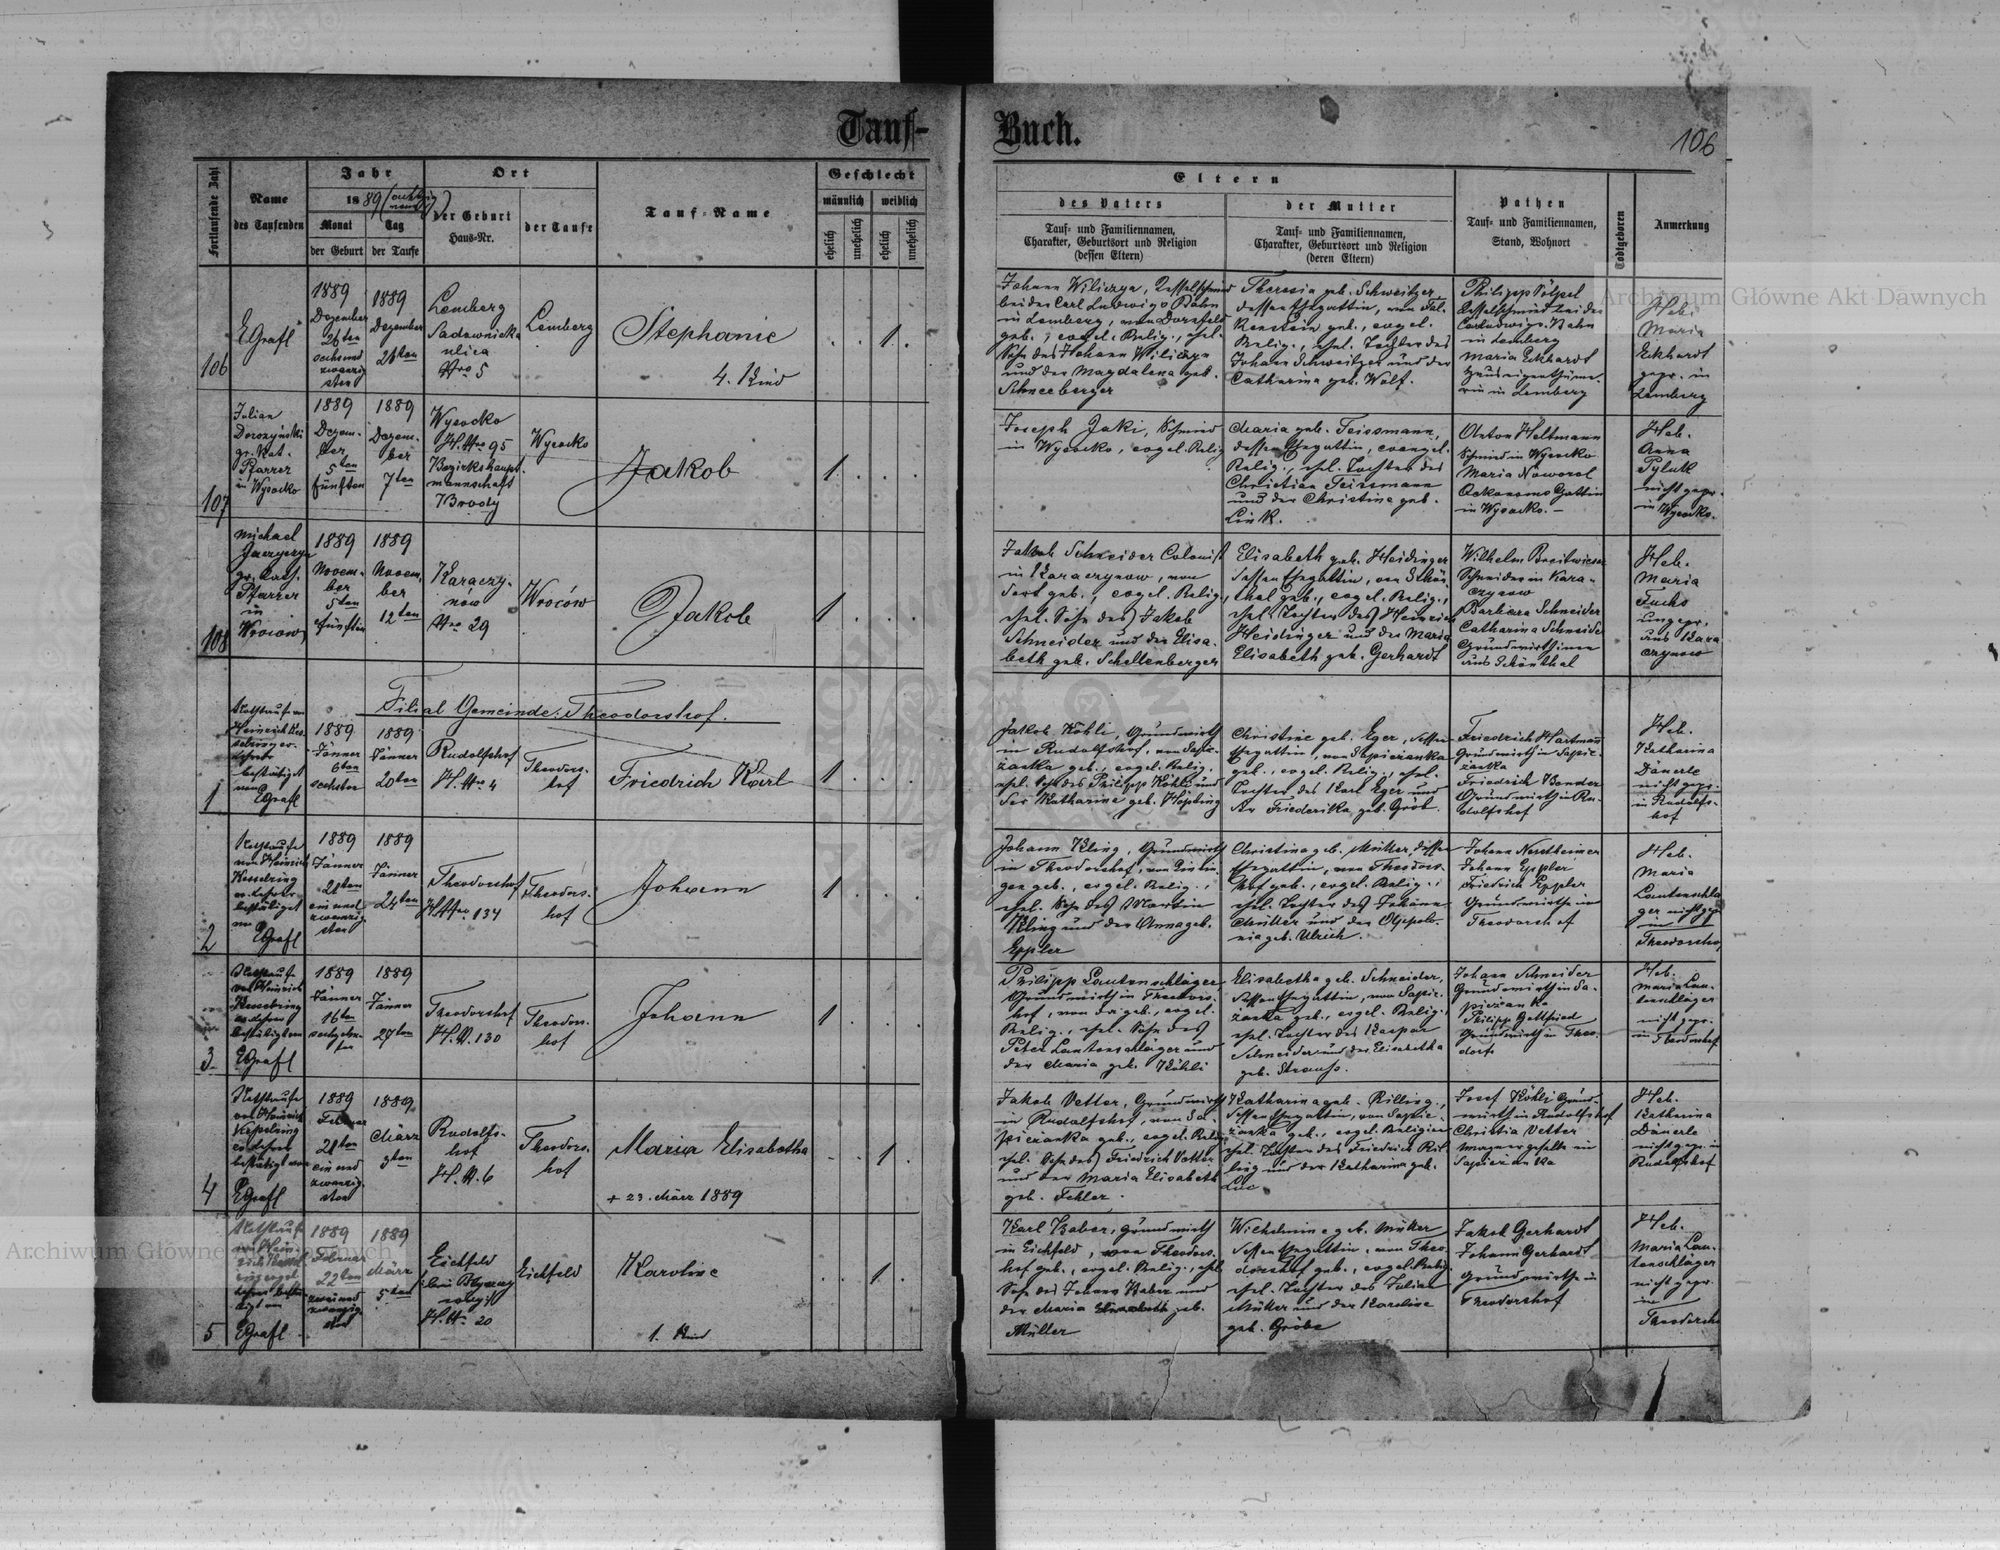 Tauf-Buch.
106
Fortlaufende Zahl
Name
des Taufenden
Jahr
1889
Monat
der Geburt
Tag
der Taufe
Ort
der Geburt
Haus-Nr.
der Taufe
Tauf-Name
Geschlecht
männlich
weiblich
ehelich
unehelich
ehelich
unehelich
Eltern
des Vaters
Tauf- und Familiennamen,
Charakter, Geburtsort und Religion
(dessen Eltern)
der Mutter
Tauf- und Familiennamen,
Charakter, Geburtsort und Religion
(deren Eltern)
Pathen
Tauf- und Familiennamen,
Stand, Wohnort
Todtgeboren
Anmerkung
106
EGrafl
1889
Dezember
26ten
sechsund
zwanzig
sten
1889
Dezember
28ten
Lemberg
Sadownicka
ulica
Nro 5
Lemberg
Stephanie
4. Kind
1
Johann Wiliczya, Kesselschmied
bei der Carl Ludwigs Bahn
in Lemberg, von Dornfeld
geb., evgel. Relig., ehel.
Sohn des Johann Wiliczya
und der Magdalena geb.
Schneeberger
Theresia geb. Schweitzer
dessen Ehegattin, von Fal-
kenstein geb., evgel.
Relig., ehel. Tochter des
Johann Schweitzer und der
Catharina geb. Wolf.
Philipp Völpel
Kesselschmied bei der
Carl Ludwigs-Bahn
in Lemberg
Maria Ekhardt
Hauseigenthüme-
rin in Lemberg
Heb.
Maria
Ekhardt
gepr. in
Lemberg
107
Julian
Dorozyński
gr. Kat.
Pfarrer
in Wysocko
1889
Dezem-
ber
5ten
fünften
1889
Dezem-
ber
7ten
Wysocko
H. Nro 95
Bezirkshaupt-
mannschaft
Brody
Wysocko
Jakob
1
Joseph Jaki, Schmied
in Wysocko, evgel. Relig
Maria geb. Teissmann,
dessen Ehegattin, evangel.
Relig., ehel. Tochter des
Christian Teissmann
und der Christine geb.
Link.
Anton Heltmann
Schmied in Wysocko
Maria Noworol
Oekonoms Gattin
in Wysocko. –
Heb.
Anna
Pyluk
nicht gepr.
in Wysocko.
108
Michael
gr. Kath.
Pfarrer
in
Wrocow
1889
Novem-
ber
5ten
fünften
1889
Novem-
ber
12ten
Karaczy-
nów
Nro 29
Wroców
Jakob
1
Jakob Schneider Colonist
in Karaczynow, von
geb., evgel. Relig.,
ehel. Sohn des Jakob
Schneider und der Elisa-
beth geb. Schellenberger
Elisabeth geb. Heidinger
dessen Ehegattin, von Schön-
thal geb., evgel. Relig.,
ehel. Tochter des Heinrich
Heidinger und der Maria
Elisabeth geb. Gerhardt
Wilhelm Breitwieser
Schneider in Kara-
czynow
Barbara Schneider
Catharina Schneider
Grundwirthinen
aus Schönthal
Heb.
Maria
Fuchs
ungepr.
aus Kara
czynow
Filial Gemeinde: Theodorshof.
1
Nothtaufe von
Heinrich Kes-
selring ev.
Lehrer
bestätiget
von EGrafl
1889
Jänner
6ten
sechsten
1889
Jänner
20ten
Rudolfshof
H. Nro 4
Theodors-
hof
Friedrich Karl
1
Jakob Köhli, Grundwirth
in Rudolfshof, von Sapie-
zanka geb., evgel. Relig.
ehel. Sohn des Philipp Köhli und
der Katharine geb. Höpling
Christine geb. Eger, dessen
Ehegattin, von Sapiezanka
geb., evgel. Relig., ehel.
Tochter des Karl Eger und
der Friederika geb. Gröb.
Friedrich Hartman
Grundwirth in Sapie-
zanka
Friedrich Bender
Grundwirth in Ru-
dolfshof
Heb.
Katharina
Däuerle
nicht gepr.
in Rudolfs-
hof
2
Nothtaufe
von Heinrich
Kesselring
ev. Lehrer
bestätiget
von EGrafl
1889
Jänner
21ten
ein und
zwanzig-
sten
1889
Jänner
24ten
Theodorshof
H. Nro 134
Theodors-
hof
Johann
1
Johann Kling, Grundwirth
in Theodorshof, von
geb., evgel. Relig.,
ehel. Sohn des Martin
Kling und der Anna geb.
Eppler
Christina geb. Müller, dessen
Ehegattin, von Theodors-
hof geb., evgel. Relig.,
ehel. Tochter des Johann
Müller und der Appolo-
nia geb. Ulrich.
Johann Nerstheimer
Johann Eppler
Friedrich Eppler
Grundwirthe in
Theodorshof
Heb.
Maria
Lautenschlä
ger nicht gep
in
Theodorsho
3
Nothtaufe
von Heinrich
Kesselring
ev. Lehrer
bestätigt von
EGrafl
1889
Jänner
16ten
sechzehn-
ten
1889
Jänner
27ten
Theodorshof
H. N. 130
Theodors-
hof
Johann
1
Philipp Lautenschläger
Grundwirth in Theodors-
hof, von da geb., evgel.
Relig., ehel. Sohn des
Peter Lautenschläger und
der Maria geb. Köhli
Elisabetha geb. Schneider,
dessen Ehegattin, von Sapie-
zanka geb., evgel. Relig.
ehel. Tochter des Kaspar
Schneider und der Elisabetha
geb. Strauss.
Johann Schneider
Grundwirth in Sa-
piezanka
Philipp Gottfried
Grundwirth in Theo-
dorfs
Heb.
Maria Lau-
tenschläger
nicht gepr.
in Theodorshof
4
Nothtaufe
von Heinrich
Kesselring
ev. Lehrer
bestätigt von
EGrafl
1889
Februar
21ten
ein und
zwanzig-
sten
1889
März
9ten
Rudolfs-
hof
H. N. 6
Theodors-
hof
Maria Elisabetha
+ 23. März 1889
1
Jakob Vetter, Grundwirth
in Rudolfshof, von Sa-
piezanka geb., evgel. Relig
ehel. Sohn des Friedrich Vetter
und der Maria Elisabeth
geb. Fehler.
Katharina geb. Rilling,
dessen Ehegattin, von Sapie-
zanka geb., evgel. Religion
ehel. Tochter des Friedrich Ril-
ling und der Katharina geb.
Luc
Josef Köhli Grund-
wirth in Rudolfshof
Christia Vetter
in
Sapiezanka
Heb.
Katharina
Däuerle
nicht gepr. in
Rudolfshof
5
Nothtaufe
EGrafl
1889
Februar
22ten
zwei und
zwanzig
1889
März
5ten
Eichfeld
H. Nr. 20
Eichfeld
Karoline
1. Kind
1
Karl Baber, Grundwirth
in Eichfeld, von Theodors-
hof geb., evgel. Relig., ehel.
Sohn des Johann Baber und
der Maria Elisabeth geb.
Müller
Wilhelmine geb. Müller
dessen Ehegattin, von Theo-
dorshof geb., evgel. Relig.
ehel. Tochter des Julian
Müller und der Karoline
geb. Gröbe
Jakob Gerhardt
Johann Gerhardt
Grundwirthe in
Theodorshof
Heb.
Maria Lau-
tenschläger
nicht gepr.
in
Theodorsho
Archiwum Główne Akt Dawnych
Archiwum Główne Akt Dawnych